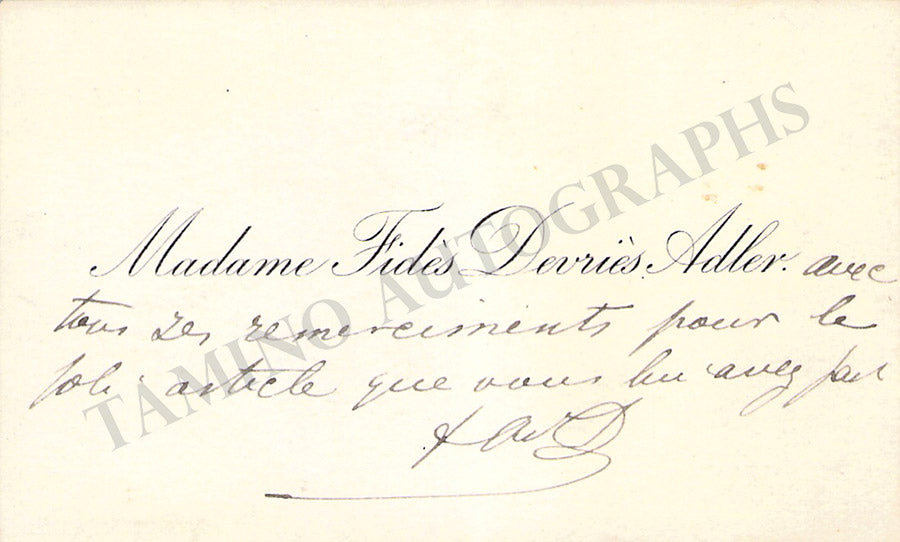 Madame Fidès Devriès Adler. avec
tous ses remerciments pour le
joli article que vous lui avez fait
TAMINO AUTOGRAPHS